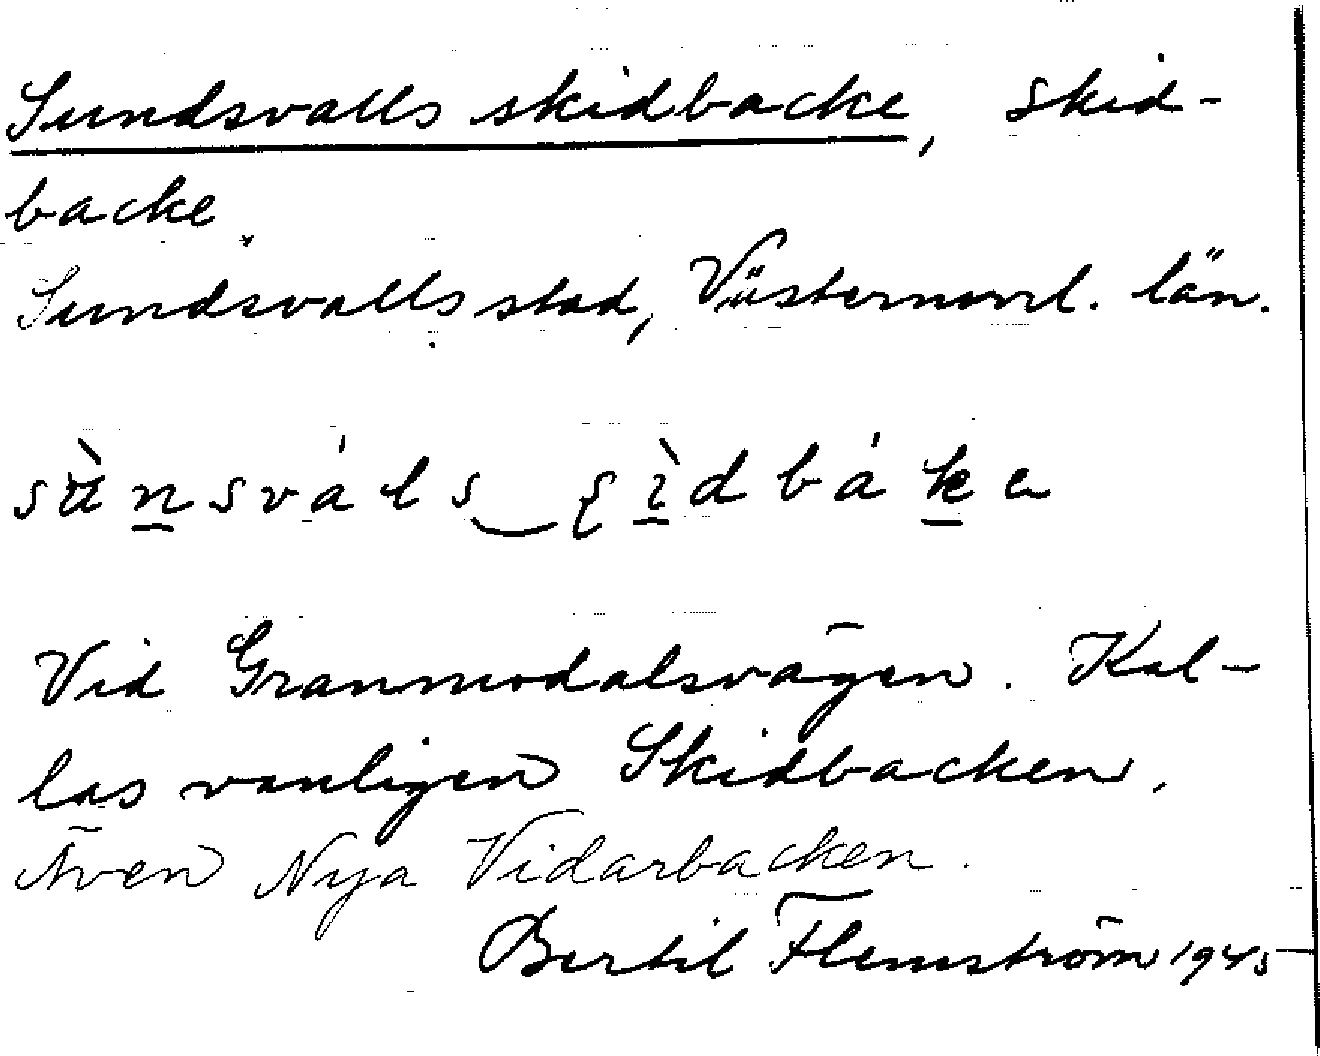 Sundsvalls skidbacke, skid-
backe.
Sundsvalls stad, Västernorrl. län.
sùnsváls ʂìdbáke
Vid Granmodalsvägen. Kal-
las vanligen Skidbacken.
Även Nya Vidarbacken.
Bertil Flemström 1945